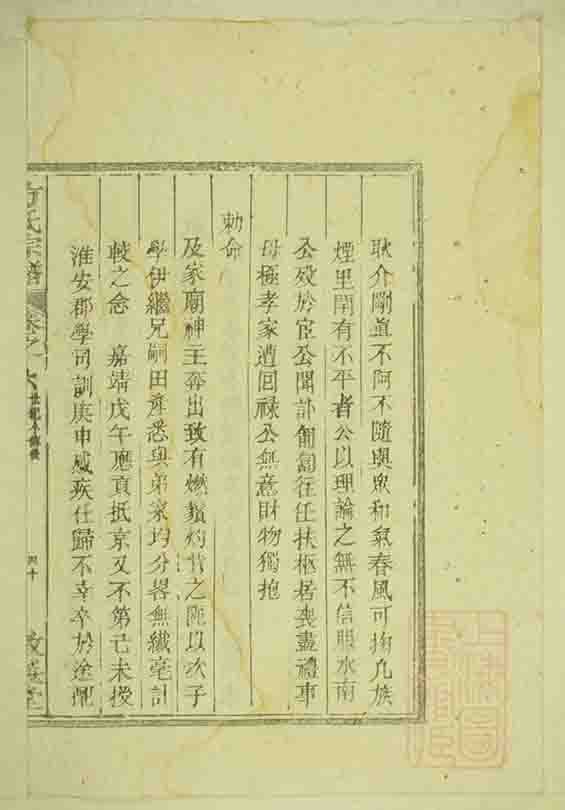 耿介剛直不阿不隨與眾和氣春風可掬凡族
煙里閈有不平者公以理諭之無不信服水南
公歿於宦公聞訃匍匐往任扶柩居喪盡禮事
母極孝家遭回祿公無意財物獨抱
勅命
及家廟神主奔出致有燃鬚灼膚之厄以次子
學伊繼兄嗣田產悉與弟衆均分畧無纖毫計
較之念　嘉靖戊午應貢抵京又不第己未授
淮安郡學司訓庚申感疾任歸不幸卒於途
氏宗譜
卷之
世紀小傳
四十